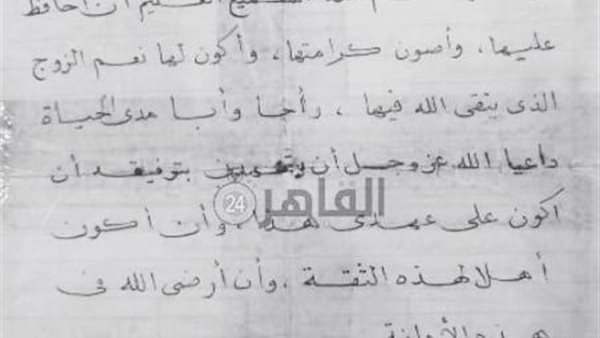 السميع العليم أن أحافظ
عليها، وأصون كرامتها، وأكون لها نعم الزوج
الذى يتقى الله فيها، وأخا وأبا مدى الحياة
داعيا الله عز وجل أن بتوفيقه أن
القاهرة 24
اكون على عهدى هذا، وأن أكون
أهلا لهذه الثقة، وأن أرضى الله فى
هذه الأمانة